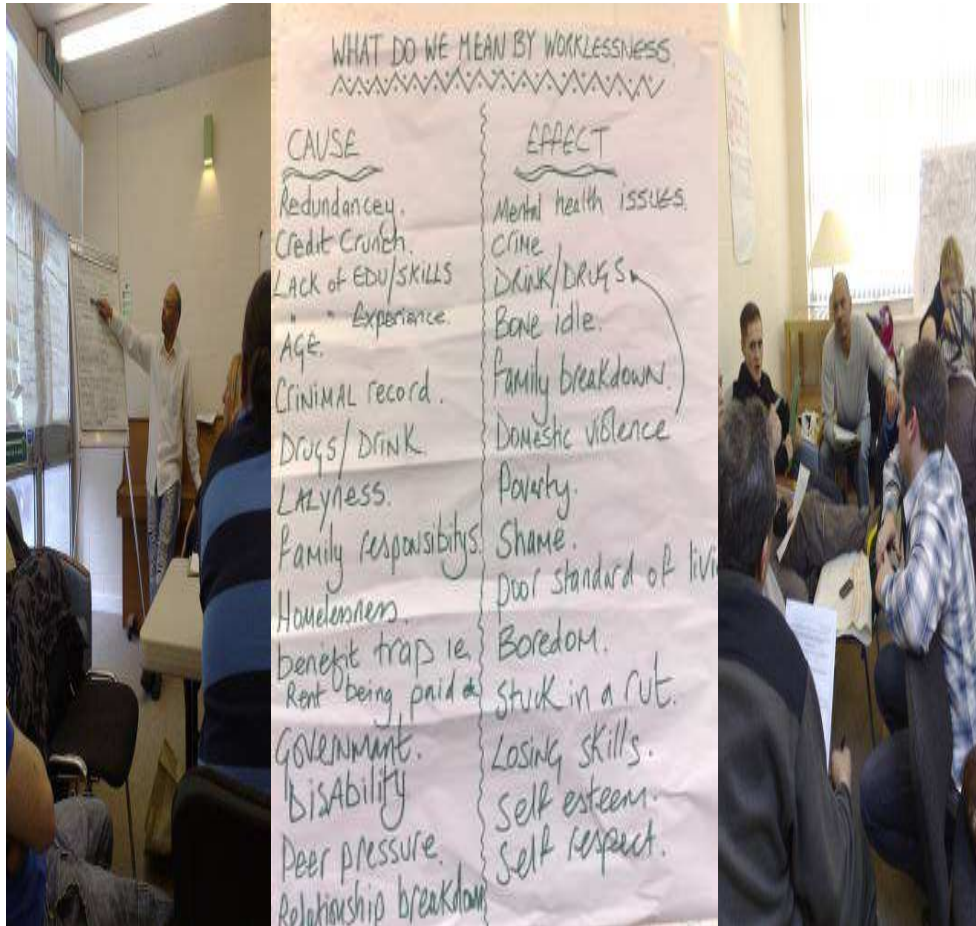 WHAT DO WE MEAN BY WORKLESSNESS.
CAUSE
Redundancey.
Credit Crunch.
LACK of EDU/SKILLS
" " Experience.
AGE.
CRINIMAL record.
DRUGS/DRINK.
LAZYNESS.
Family responsibitys.
Homelessness.
benefit trap ie
Rent being paid
GOVERNMANT.
DISABILITY
Peer pressure.
Relationship breakdown
EFFECT
Mental health ISSUES.
CRIME
DRINK/DRUGS
BONE idle.
Family breakdown.
Domestic violence
Poverty.
Shame.
Poor standard of livi
Boredom.
Stuck in a rut.
LOSING skills.
Self esteem.
Self respect.